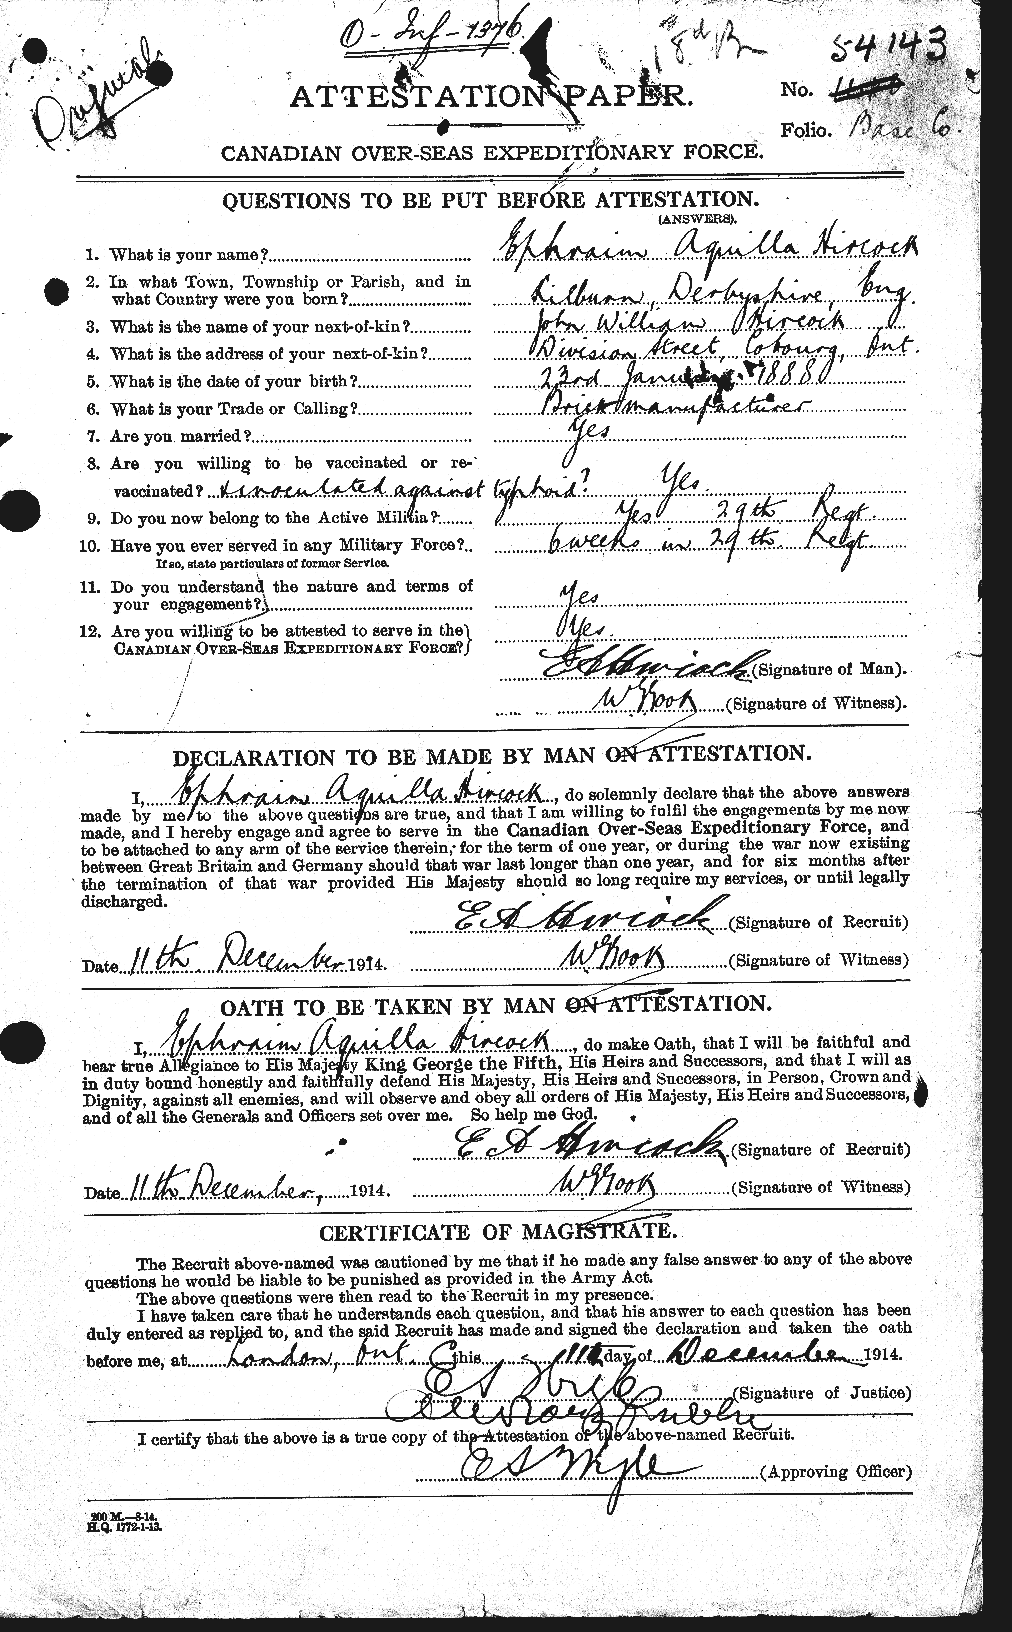 O - Inf - 1376
18th Bn
54143
Original
ATTESTATION PAPER.
No.
Folio. Base Co.
CANADIAN OVER-SEAS EXPEDITIONARY FORCE.
QUESTIONS TO BE PUT BEFORE ATTESTATION.
(ANSWERS).
1. What is your name? Ephraim Aquilla Hircock
2. In what Town, Township or Parish, and in
what Country were you born? Kilburn, Derbyshire, Eng.
3. What is the name of your next-of-kin? John William Hircock
4. What is the address of your next-of-kin? Division Street, Cobourg, Ont.
5. What is the date of your birth? 23rd January 1888
6. What is your Trade or Calling? Brick manufacturer
7. Are you married? Yes
8. Are you willing to be vaccinated or re-
vaccinated? & inoculated against typhoid? Yes.
9. Do you now belong to the Active Militia? Yes 29th Regt.
10. Have you ever served in any Military Force? 6 weeks in 29th Regt
If so, state particulars of former Service.
11. Do you understand the nature and terms of
your engagement? Yes
12. Are you willing to be attested to serve in the Yes.
CANADIAN OVER-SEAS EXPEDITIONARY FORCE?
E A Hircock (Signature of Man).
(Signature of Witness).
DECLARATION TO BE MADE BY MAN ON ATTESTATION.
I, Ephraim Aquilla Hircock, do solemnly declare that the above answers
made by me to the above questions are true, and that I am willing to fulfil the engagements by me now
made, and I hereby engage and agree to serve in the Canadian Over-Seas Expeditionary Force, and
to be attached to any arm of the service therein, for the term of one year, or during the war now existing
between Great Britain and Germany should that war last longer than one year, and for six months after
the termination of that war provided His Majesty should so long require my services, or until legally
discharged.
E A Hircock (Signature of Recruit)
Date 11th December 1914. (Signature of Witness)
OATH TO BE TAKEN BY MAN ON ATTESTATION.
I, Ephraim Aquilla Hircock, do make Oath, that I will be faithful and
bear true Allegiance to His Majesty King George the Fifth, His Heirs and Successors, and that I will as
in duty bound honestly and faithfully defend His Majesty, His Heirs and Successors, in Person, Crown and
Dignity, against all enemies, and will observe and obey all orders of His Majesty, His Heirs and Successors,
and of all the Generals and Officers set over me. So help me God.
E A Hircock (Signature of Recruit)
Date 11th December, 1914. (Signature of Witness)
CERTIFICATE OF MAGISTRATE.
The Recruit above-named was cautioned by me that if he made any false answer to any of the above
questions he would be liable to be punished as provided in the Army Act.
The above questions were then read to the Recruit in my presence.
I have taken care that he understands each question, and that his answer to each question has been
duly entered as replied to, and the said Recruit has made and signed the declaration and taken the oath
before me, at London, Ont. this 11th day of December 1914.
E S Wigle (Signature of Justice)
Notary Public
I certify that the above is a true copy of the Attestation of the above-named Recruit.
E S Wigle (Approving Officer)
200 M.—8-14.
H.Q. 1772-1-13.